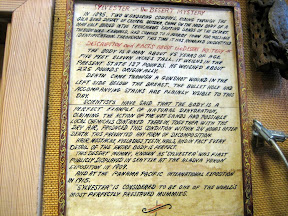 SYLVESTER - THE DESERT MYSTERY
IN 1895, TWO WANDERING COWBOYS, RIDING THROUGH THE
GILA BEND DESERT OF CENTRAL
DESCRIPTION AND FACTS ABOUT THE
THE BODY IS A MAN ABOUT 45 YEARS OF AGE,
FIVE FEET ELEVEN INCHES TALL. IT WEIGHS IN ITS
PRESENT STATE 137 POUNDS. HE WEIGHED ABOUT
225 POUNDS ORIGINALLY.
DEATH CAME THROUGH A GUNSHOT WOUND IN THE
LEFT SIDE BELOW THE BREAST, THE BULLET HOLE AND
ACCOMPANYING STAINS ARE PLAINLY VISIBLE TO THIS
DAY.
SCIENTISTS HAVE SAID THAT THE BODY IS A
PERFECT EXAMPLE OF NATURAL DEHYDRATION,
CLAIMING THE ACTION OF THE HOT SANDS AND POSSIBLY
SOME CHEMICALS CONTAINED THEREIN, TOGETHER WITH THE
DRY AIR, PRODUCED THIS CONDITION WITHIN 24 HOURS AFTER
DEATH THUS PREVENTED ANY FORM OF DECOMPOSITION.
HAIR, MUSTACHE, MUSCLES, TEETH, NAILS, AND IN FACT EVERY
DETAIL OF THE ENTIRE BODY IS PERFECT.
THIS DESERT MUMMY, KNOWN AS "SYLVESTER" WAS FIRST
PUBLICLY DISPLAYED IN SEATTLE AT THE ALASKA YUKON
EXPOSITION IN 1909.
AND AT THE PANAMA PACIFIC INTERNATIONAL EXPOSITION
IN 1915.
"SYLVESTER" IS CONSIDERED TO BE ONE OF THE WORLD'S
MOST PERFECTLY PRESERVED MUMMIES.